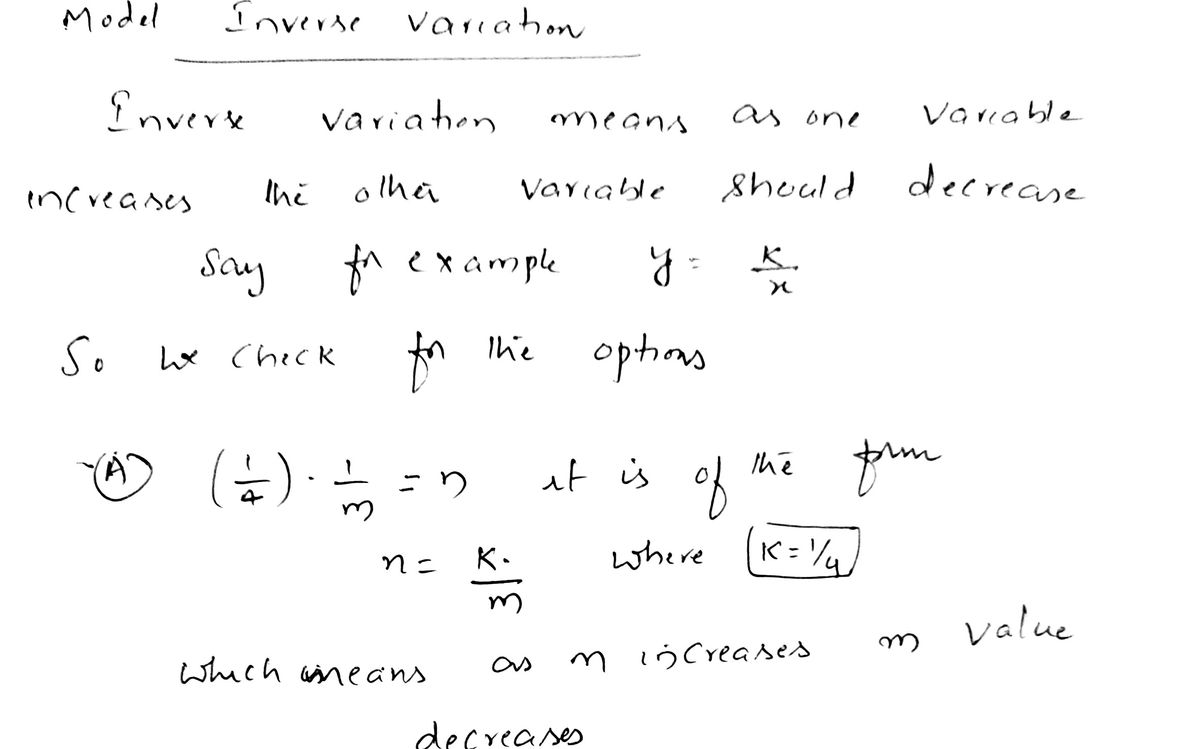 Model Inverse Variation
Inverse variation means as one variable
increases the other variable should decrease
Say for example y = K/x
So we check for the options
(A) (1/4) · 1/m = n it is of the form
n = K·/m where K = 1/4
which means as n increases m value
decreases